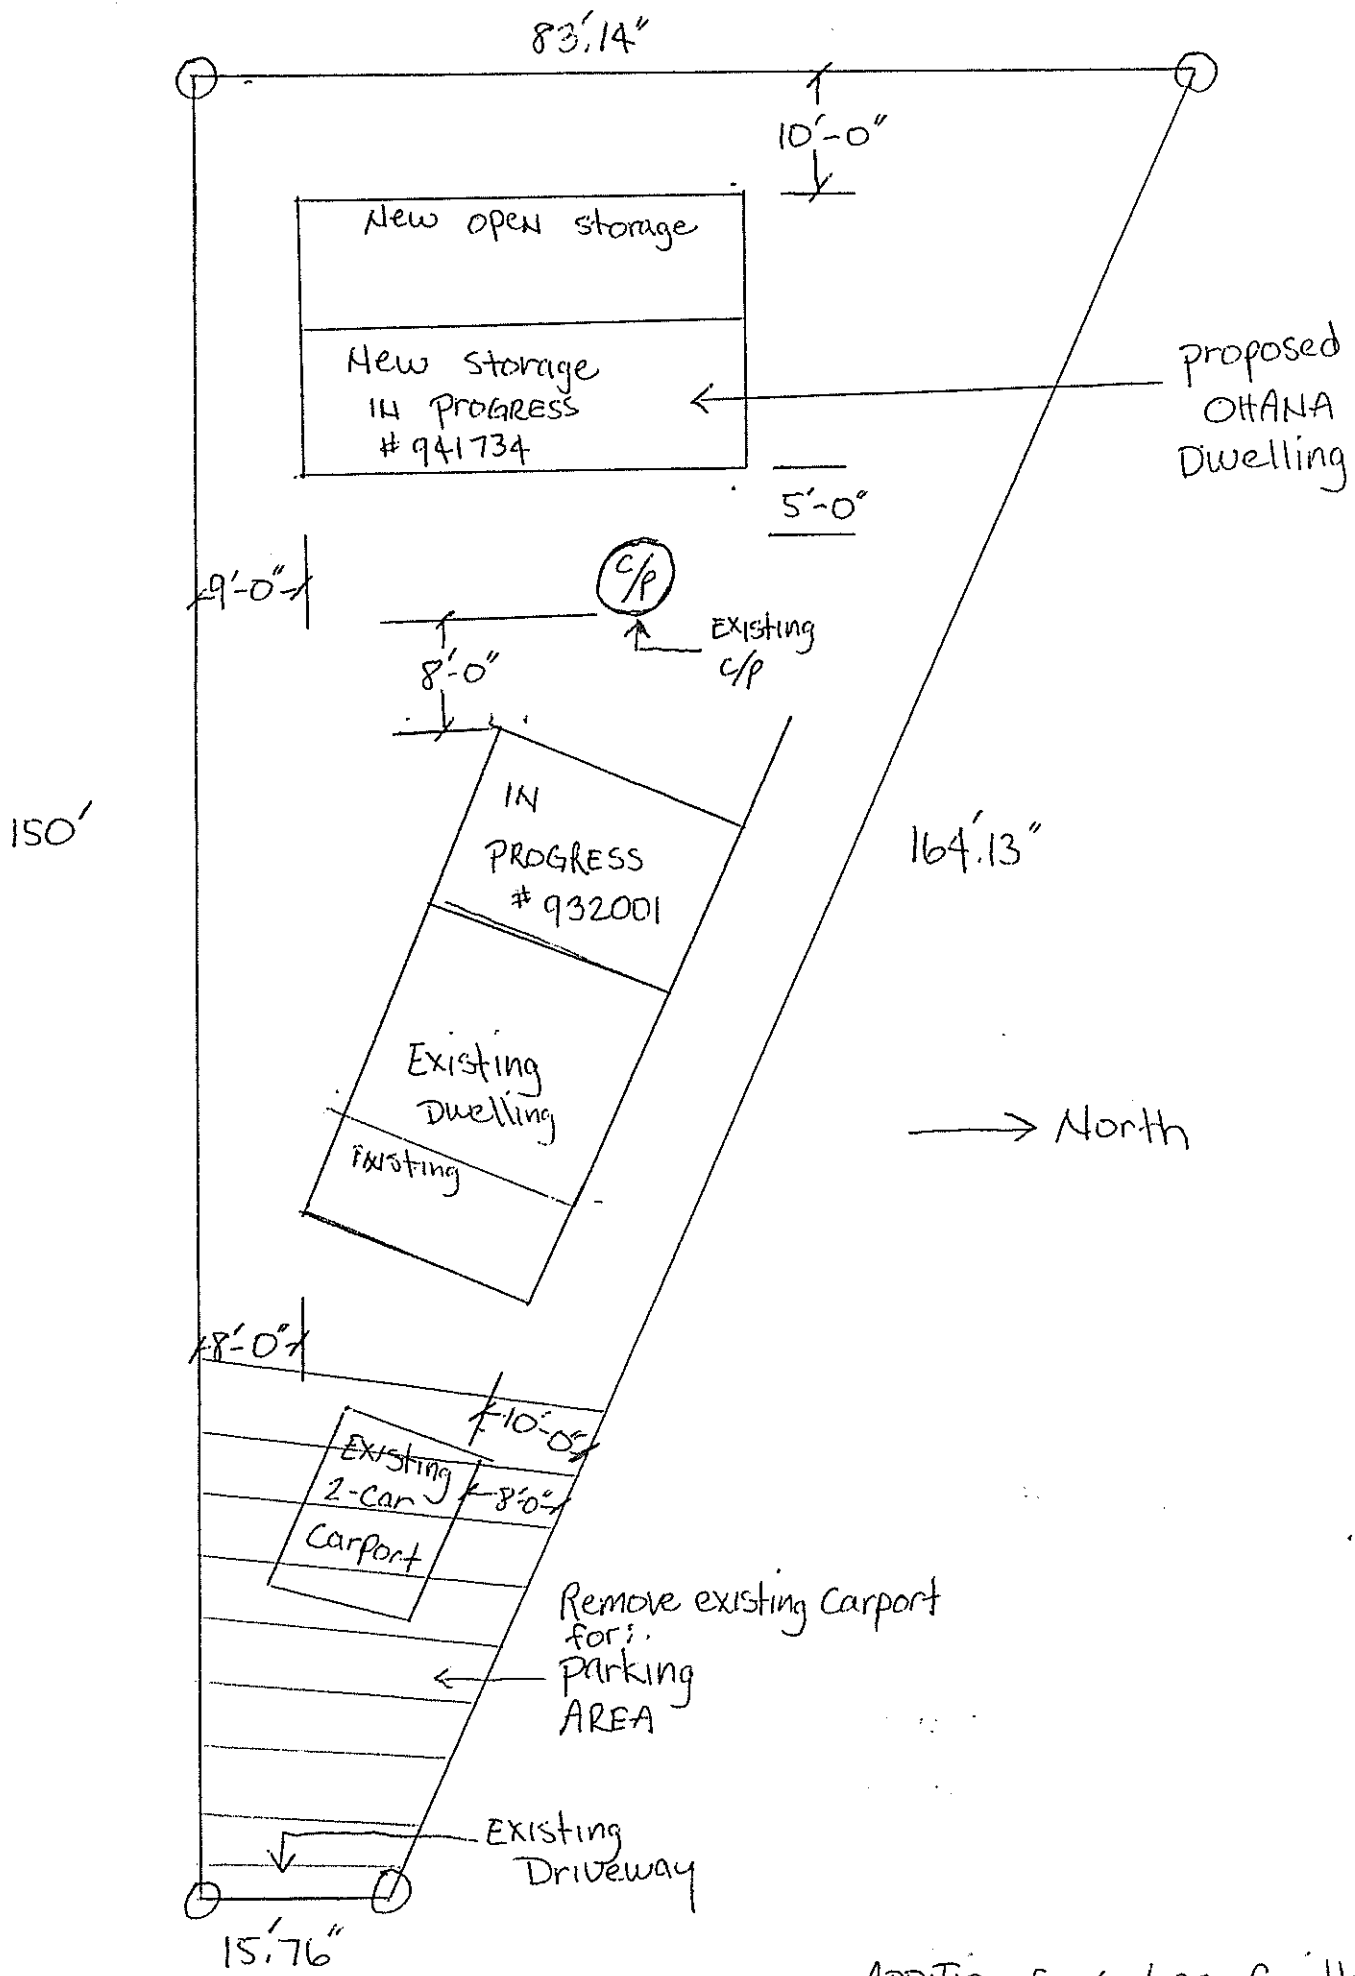 83'.14"
10'-0"
New open storage
New storage
IN PROGRESS
# 941734
proposed
OHANA
Dwelling
5'-0"
9'-0"
C/P
Existing
C/P
8'-0"
150'
IN
PROGRESS
# 932001
164'.13"
Existing
Dwelling
Existing
North
8'-0"
10'-0"
Existing
2-Car
Carport
8'-0"
Remove existing Carport
for:
parking
AREA
Existing
Driveway
15'.76"